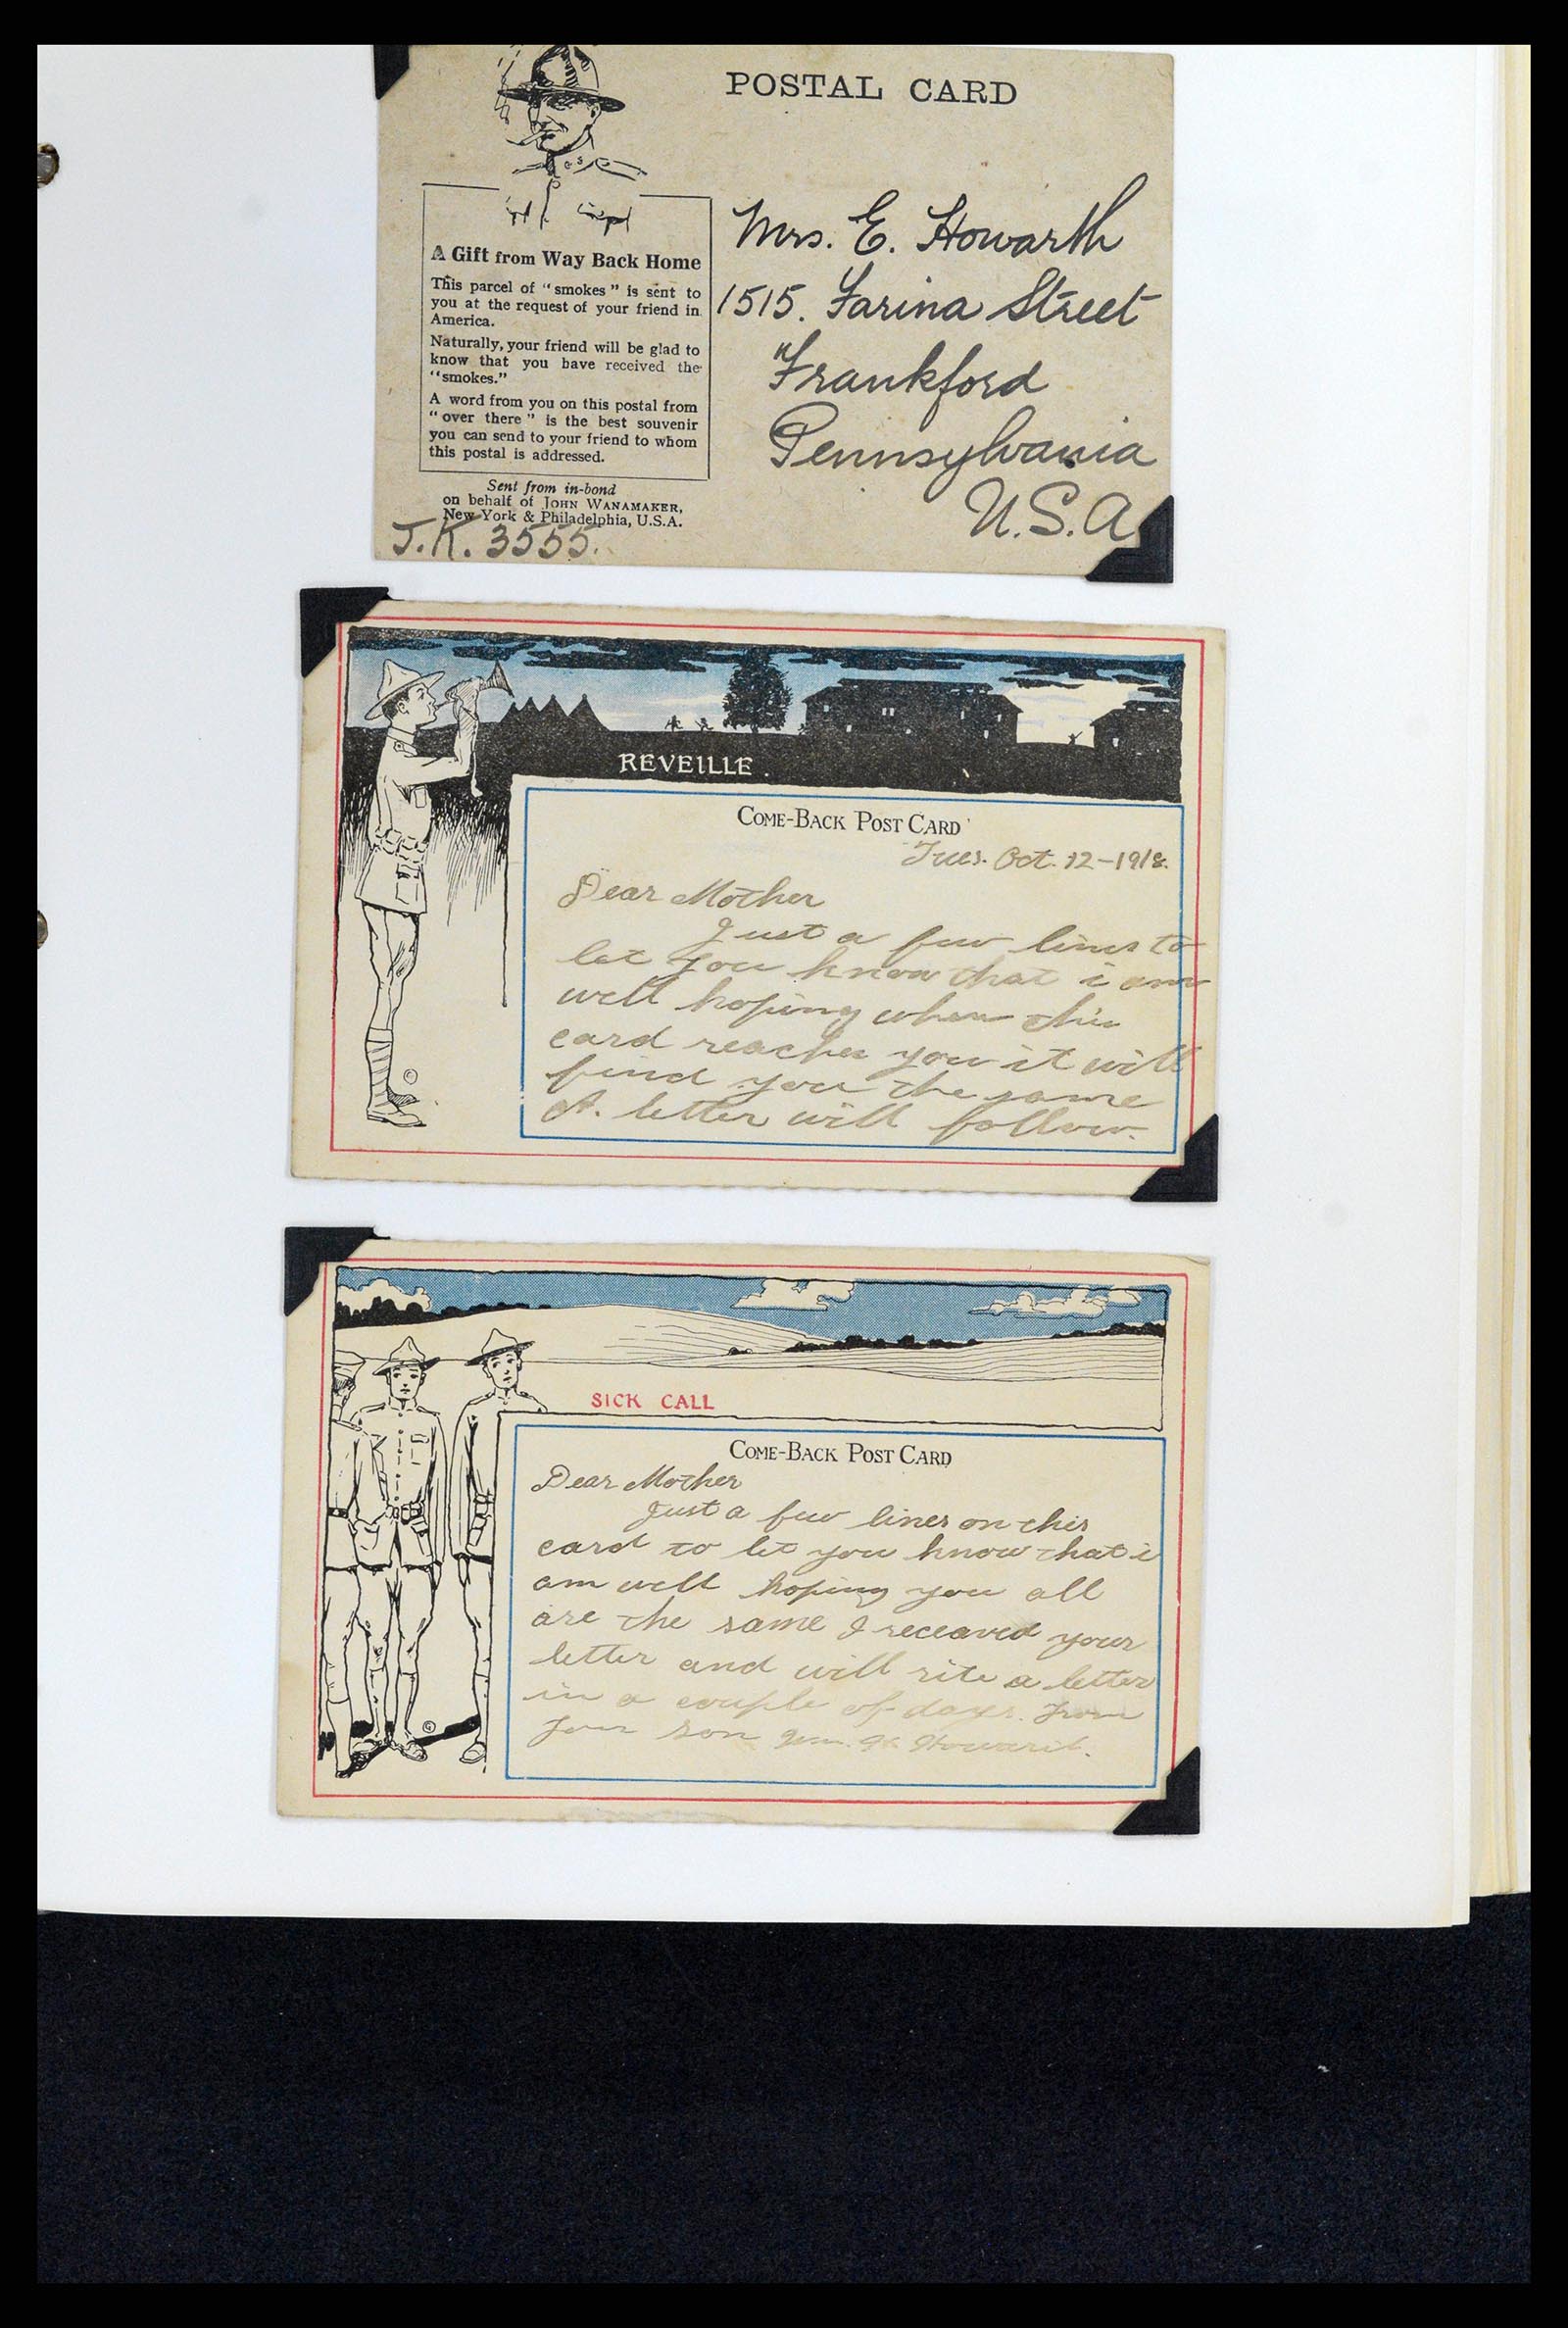 POSTAL CARD
A Gift from Way Back Home
This parcel of "smokes" is sent to
you at the request of your friend in
America.
Naturally, your friend will be glad to
know that you have received the
"smokes."
A word from you on this postal from
"over there" is the best souvenir
you can send to your friend to whom
this postal is addressed.
Sent from in-bond
on behalf of JOHN WANAMAKER,
New York & Philadelphia, U.S.A.
J.K. 3555.
Mrs. E. Howarth
1515. Farina Street
Frankford
Pennsylvania
U.S.A.
REVEILLE
COME-BACK POST CARD
Tues. Oct. 12-1918.
Dear Mother
Just a few lines to
let you know that i am
well hoping when this
card reaches you it will
find you the same
A. letter will follow.
©
SICK CALL
COME-BACK POST CARD
Dear Mother
Just a few lines on this
card to let you know that i
am well hoping you all
are the same I receaved your
letter and will rite a letter
in a couple of days. From
your son Wm.
©